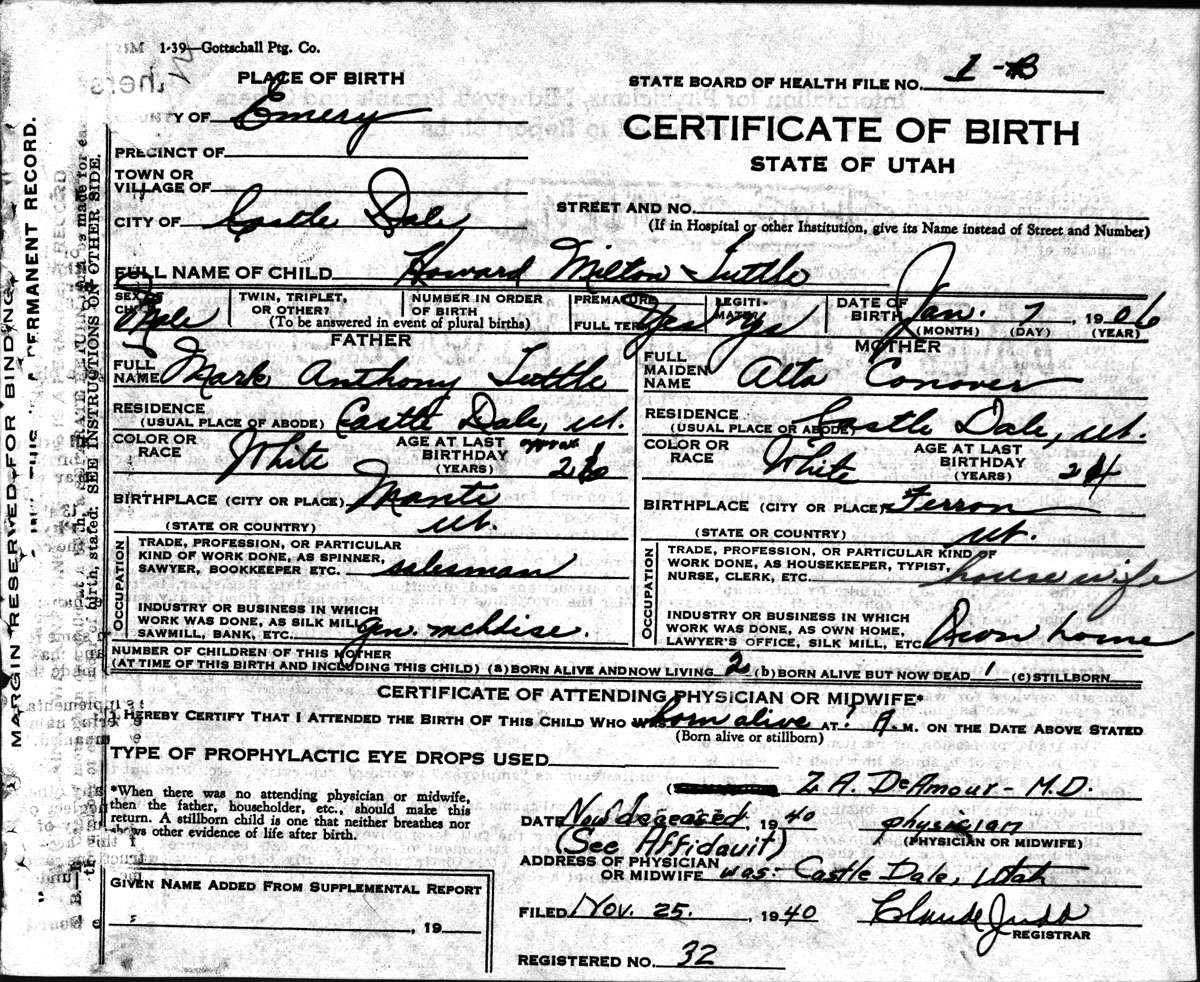 1-39—Gottschall Ptg. Co.
PLACE OF BIRTH
STATE BOARD OF HEALTH FILE NO. 1-B
COUNTY OF Emery
CERTIFICATE OF BIRTH
PRECINCT OF
STATE OF UTAH
TOWN OR
VILLAGE OF
CITY OF Castle Dale
STREET AND NO.
(If in Hospital or other Institution, give its Name instead of Street and Number)
FULL NAME OF CHILD Howard Milton Tuttle
SEX OF CHILD Male
TWIN, TRIPLET, OR OTHER?
NUMBER IN ORDER OF BIRTH
(To be answered in event of plural births)
PREMATURE
FULL TERM Yes
LEGITIMATE Yes
DATE OF BIRTH Jan. 7, 1906
(MONTH) (DAY) (YEAR)
FATHER
FULL NAME Mark Anthony Tuttle
RESIDENCE
(USUAL PLACE OF ABODE) Castle Dale, Ut.
COLOR OR RACE White
AGE AT LAST BIRTHDAY (YEARS) approx.
BIRTHPLACE (CITY OR PLACE) Manti
(STATE OR COUNTRY) Ut.
OCCUPATION
TRADE, PROFESSION, OR PARTICULAR
KIND OF WORK DONE, AS SPINNER,
SAWYER, BOOKKEEPER ETC. salesman
INDUSTRY OR BUSINESS IN WHICH
WORK WAS DONE, AS SILK MILL,
SAWMILL, BANK, ETC. gen. mchdise.
MOTHER
FULL MAIDEN NAME Alta Conover
RESIDENCE
(USUAL PLACE OR ABODE) Castle Dale, Ut.
COLOR OR RACE White
AGE AT LAST BIRTHDAY (YEARS) 24
BIRTHPLACE (CITY OR PLACE) Ferron
(STATE OR COUNTRY) Ut.
OCCUPATION
TRADE, PROFESSION, OR PARTICULAR KIND OF
WORK DONE, AS HOUSEKEEPER, TYPIST,
NURSE, CLERK, ETC. housewife
INDUSTRY OR BUSINESS IN WHICH
WORK WAS DONE, AS OWN HOME,
LAWYER'S OFFICE, SILK MILL, ETC. Own home
NUMBER OF CHILDREN OF THIS MOTHER
(AT TIME OF THIS BIRTH AND INCLUDING THIS CHILD) (a) BORN ALIVE AND NOW LIVING 2 (b) BORN ALIVE BUT NOW DEAD 1 (c) STILLBORN
CERTIFICATE OF ATTENDING PHYSICIAN OR MIDWIFE*
I HEREBY CERTIFY THAT I ATTENDED THE BIRTH OF THIS CHILD WHO WAS born alive AT ? A. M. ON THE DATE ABOVE STATED
(Born alive or stillborn)
TYPE OF PROPHYLACTIC EYE DROPS USED
*When there was no attending physician or midwife,
then the father, householder, etc., should make this
return. A stillborn child is one that neither breathes nor
shows other evidence of life after birth.
GIVEN NAME ADDED FROM SUPPLEMENTAL REPORT
, 19
DeAmour - M.D.
DATE Now deceased, 1940 physician
(See Affidavit) (PHYSICIAN OR MIDWIFE)
ADDRESS OF PHYSICIAN
OR MIDWIFE was: Castle Dale, Utah
FILED Nov. 25., 1940 Claude Judd
REGISTRAR
REGISTERED NO. 32
MARGIN RESERVED FOR BINDING
PERMANENT RECORD.
birth, stated. SEE INSTRUCTIONS ON OTHER SIDE.